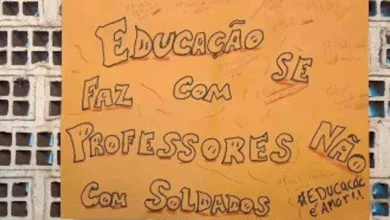 EDUCAÇÃO SE
FAZ COM
PROFESSORES NÃO
COM SOLDADOS
#EDUCAÇÃO
É AMOR!!